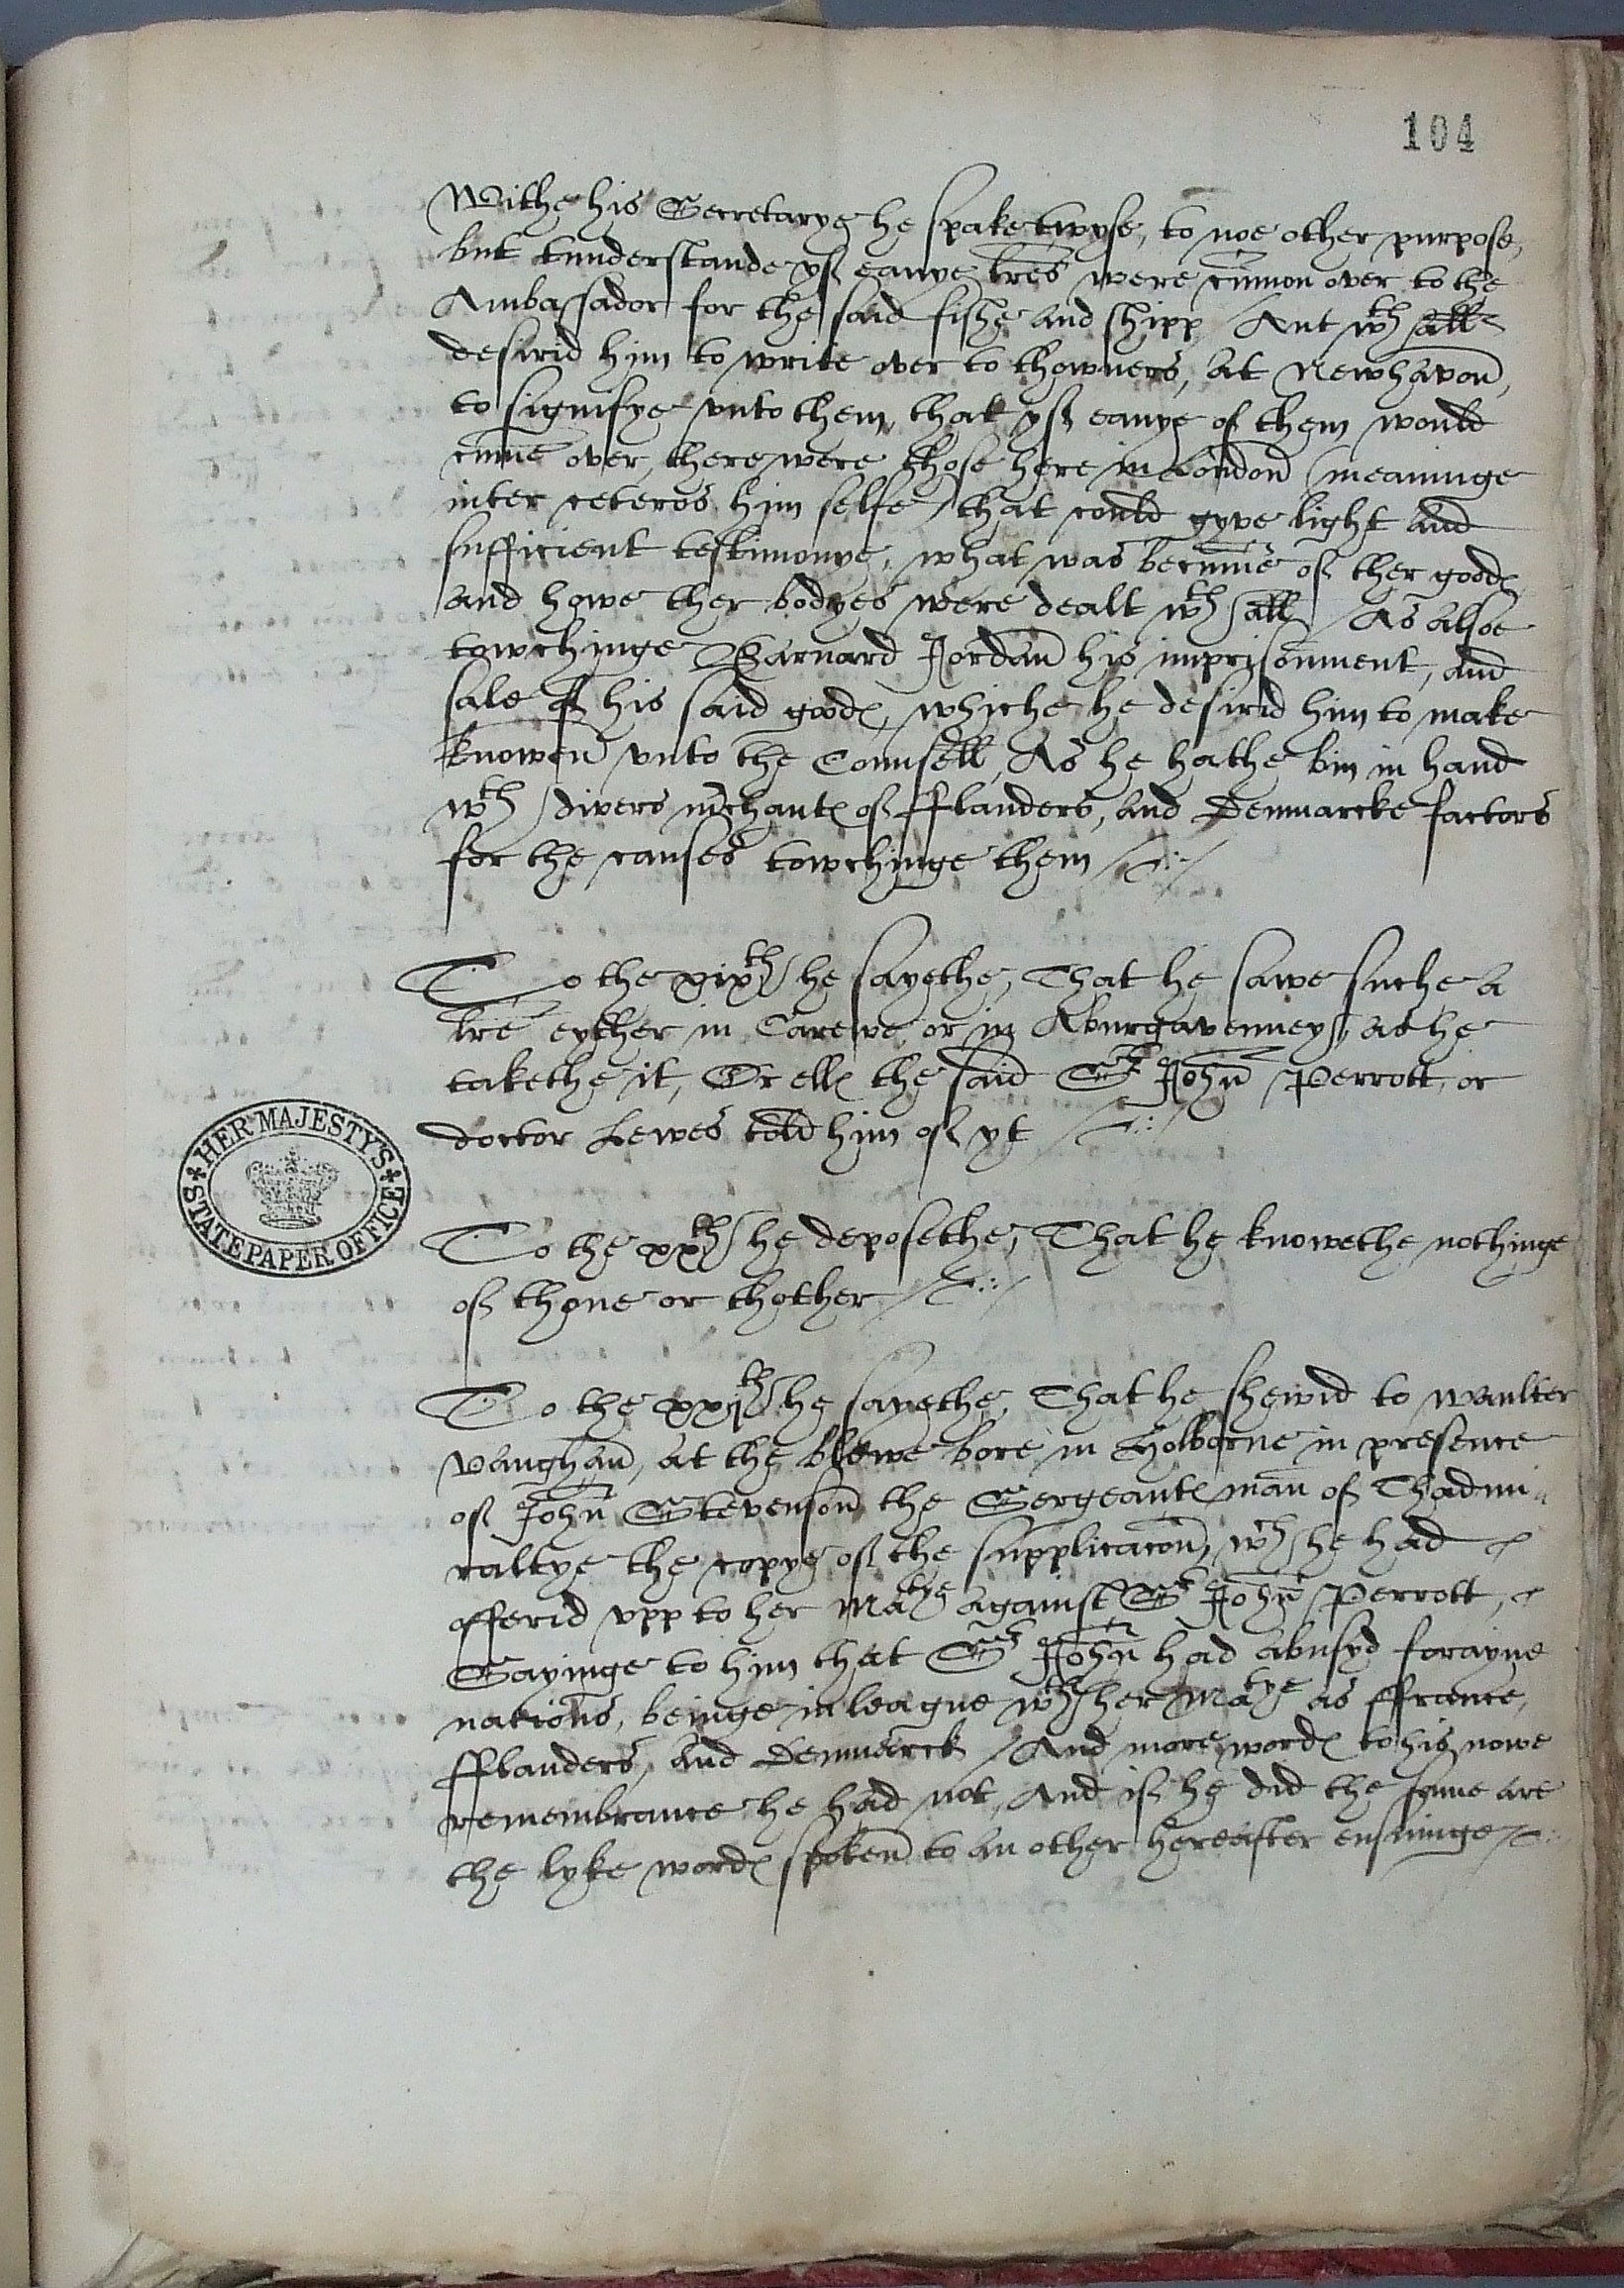 104
Withe his Secretarye he spake twyse, to noe other purpose,
but tunderstande yf eanye lres were cumon over to the
Ambassador for the said fishe and shipp / Ant wth all
desirid him to write over to thowners, at Newhavon,
to signifye vnto them, that yf eanye of them would
cume over, there were those here in London (meaninge
inter ceteros him selfe) that could gyve light and
sufficient testimonye, what was becume of ther goodes
and howe ther bodyes were dealt wth all / As alsoe
towchinge Barnard Jordan his imprisonment, and
sale of his said goodes, whiche he desirid him to make
knowen vnto the Counsell, As he hathe bin in hand
wth divers mchantes of fflanders, and Denmarcke factors
for the causes towchinge them
To the xixth he sayethe, That he sawe suche a
lre eyther in Carewe or in Aburgavenney, as he
takethe it, Or elles the said Sr John Perrott, or
doctor Lewes told him of yt
To the xxth he deposethe, That he knowethe nothinge
of thone or thother
To the xxjth he sayethe, That he shewid to Waulter
Vaughan, at the blewe bore in Holborne in presence
of John Stevenson the Sergeantes man of Thadmi-
raltye the copye of the supplicacon, wch he had
offerid vpp to her Matye against Sr John Perrott,
Sayinge to him that Sr John had abusyd forayne
nations, beinge in league wth her Matye as ffrance,
fflanders, and Denmarck / And more wordes to his nowe
remembrance he had not, And if he did the same are
the lyke wordes spoken to an other hereafter ensuinge
HER MAJESTY'S
STATE PAPER OFFICE